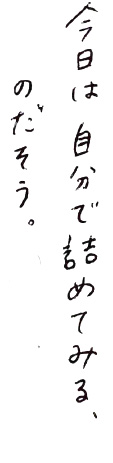 今日は自分で詰めてみる、
のだそう。